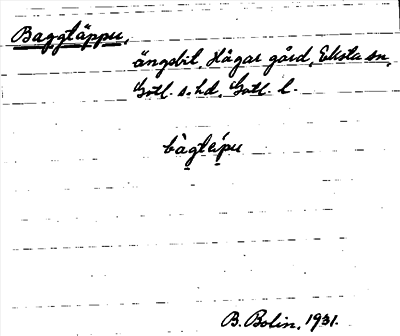 Baggtäppu,
ängsbit, Hägar gård, Eksta sn,
Gotl. s. hd, Gotl. l.
bàgtéipu
B. Bolin, 1931.